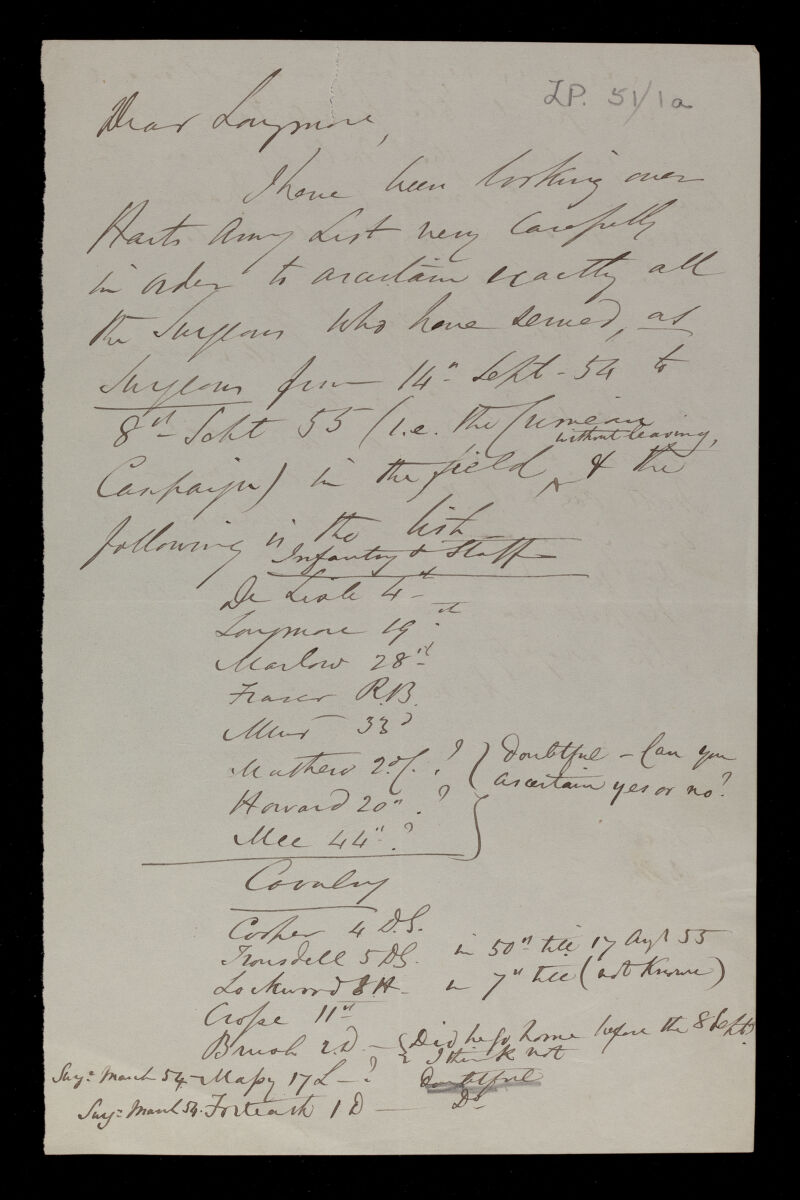 LP. 51/1a
Dear Longmore,
I have been looking over
Harts Army List very carefully
in order to ascertain exactly all
the Surgeons who have served, as
Surgeons from 14th Sept - 54 to
8th Sept 55 (i.e. the Crimean
without leaving,
Campaign) in the field ^ & the
following is the list
Infantry & Staff
De Lisle 4th
Longmore 19th
Marlow 28th
Fraser R.B.
Muir 33d
Mathew 2d/. ?
Doubtful - Can you
ascertain yes or no?
Howard 20th ?
Mee 44th ?
Cavalry
Cooper 4 D.G.
Trousdell 5 DG. in 50th till 17 Augt 55
Lockwood 8 H - in 7th till (not known)
Crosse 11th
Brush 2. D. - Did he go home before the 8 Sept?
I think not
Surgn March 54 - Massy 17 L - ? Doubtful
Surgn March 54. Forteath 1 D — Do